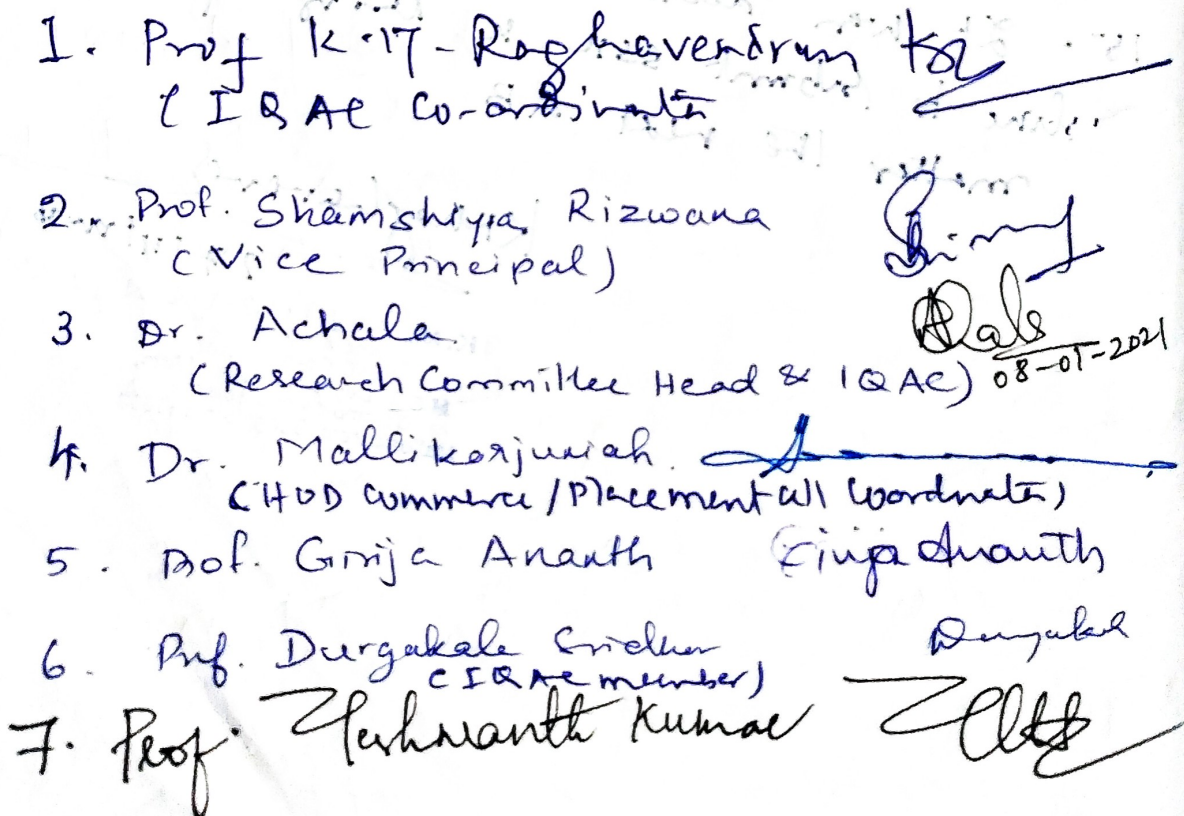 1. Prof K.17-Raghavendran
(IQAC Co-ordinator
2. Prof. Shamshiya Rizwana
(Vice Principal)
3. Dr. Achala
08-01-2021
(Research Committee Head & IQAC)
4. Dr. Mallikarjuniah.
(HOD Commerce / Placement cell Coordinator)
5. Prof. Girija Ananth Girija Ananth
6. Prof. Durgakala Sridhar Durgakala
(IQAC member)
7. Prof. Yeshwanth Kumar